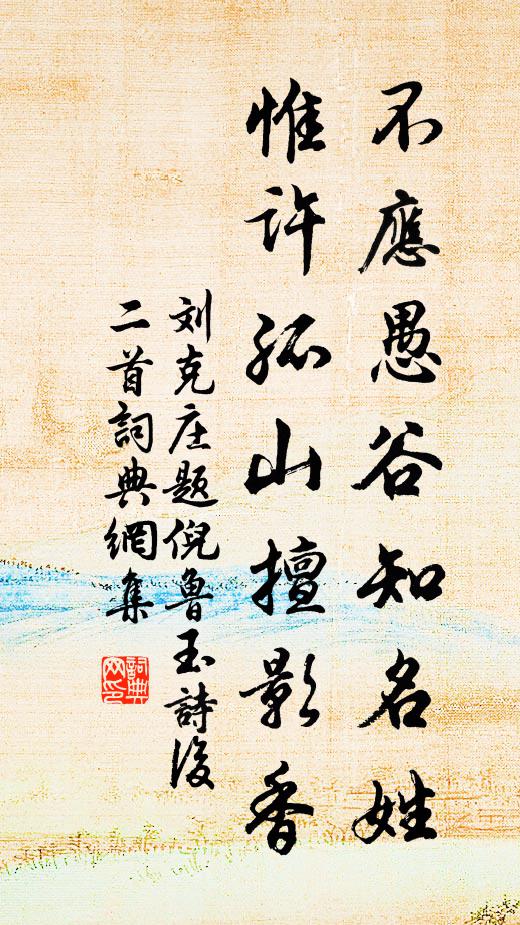 不應愚谷知名姓
惟許孤山擅影香
刘克庄题倪魯玉詩後
二首詞典網集
詞典
网印